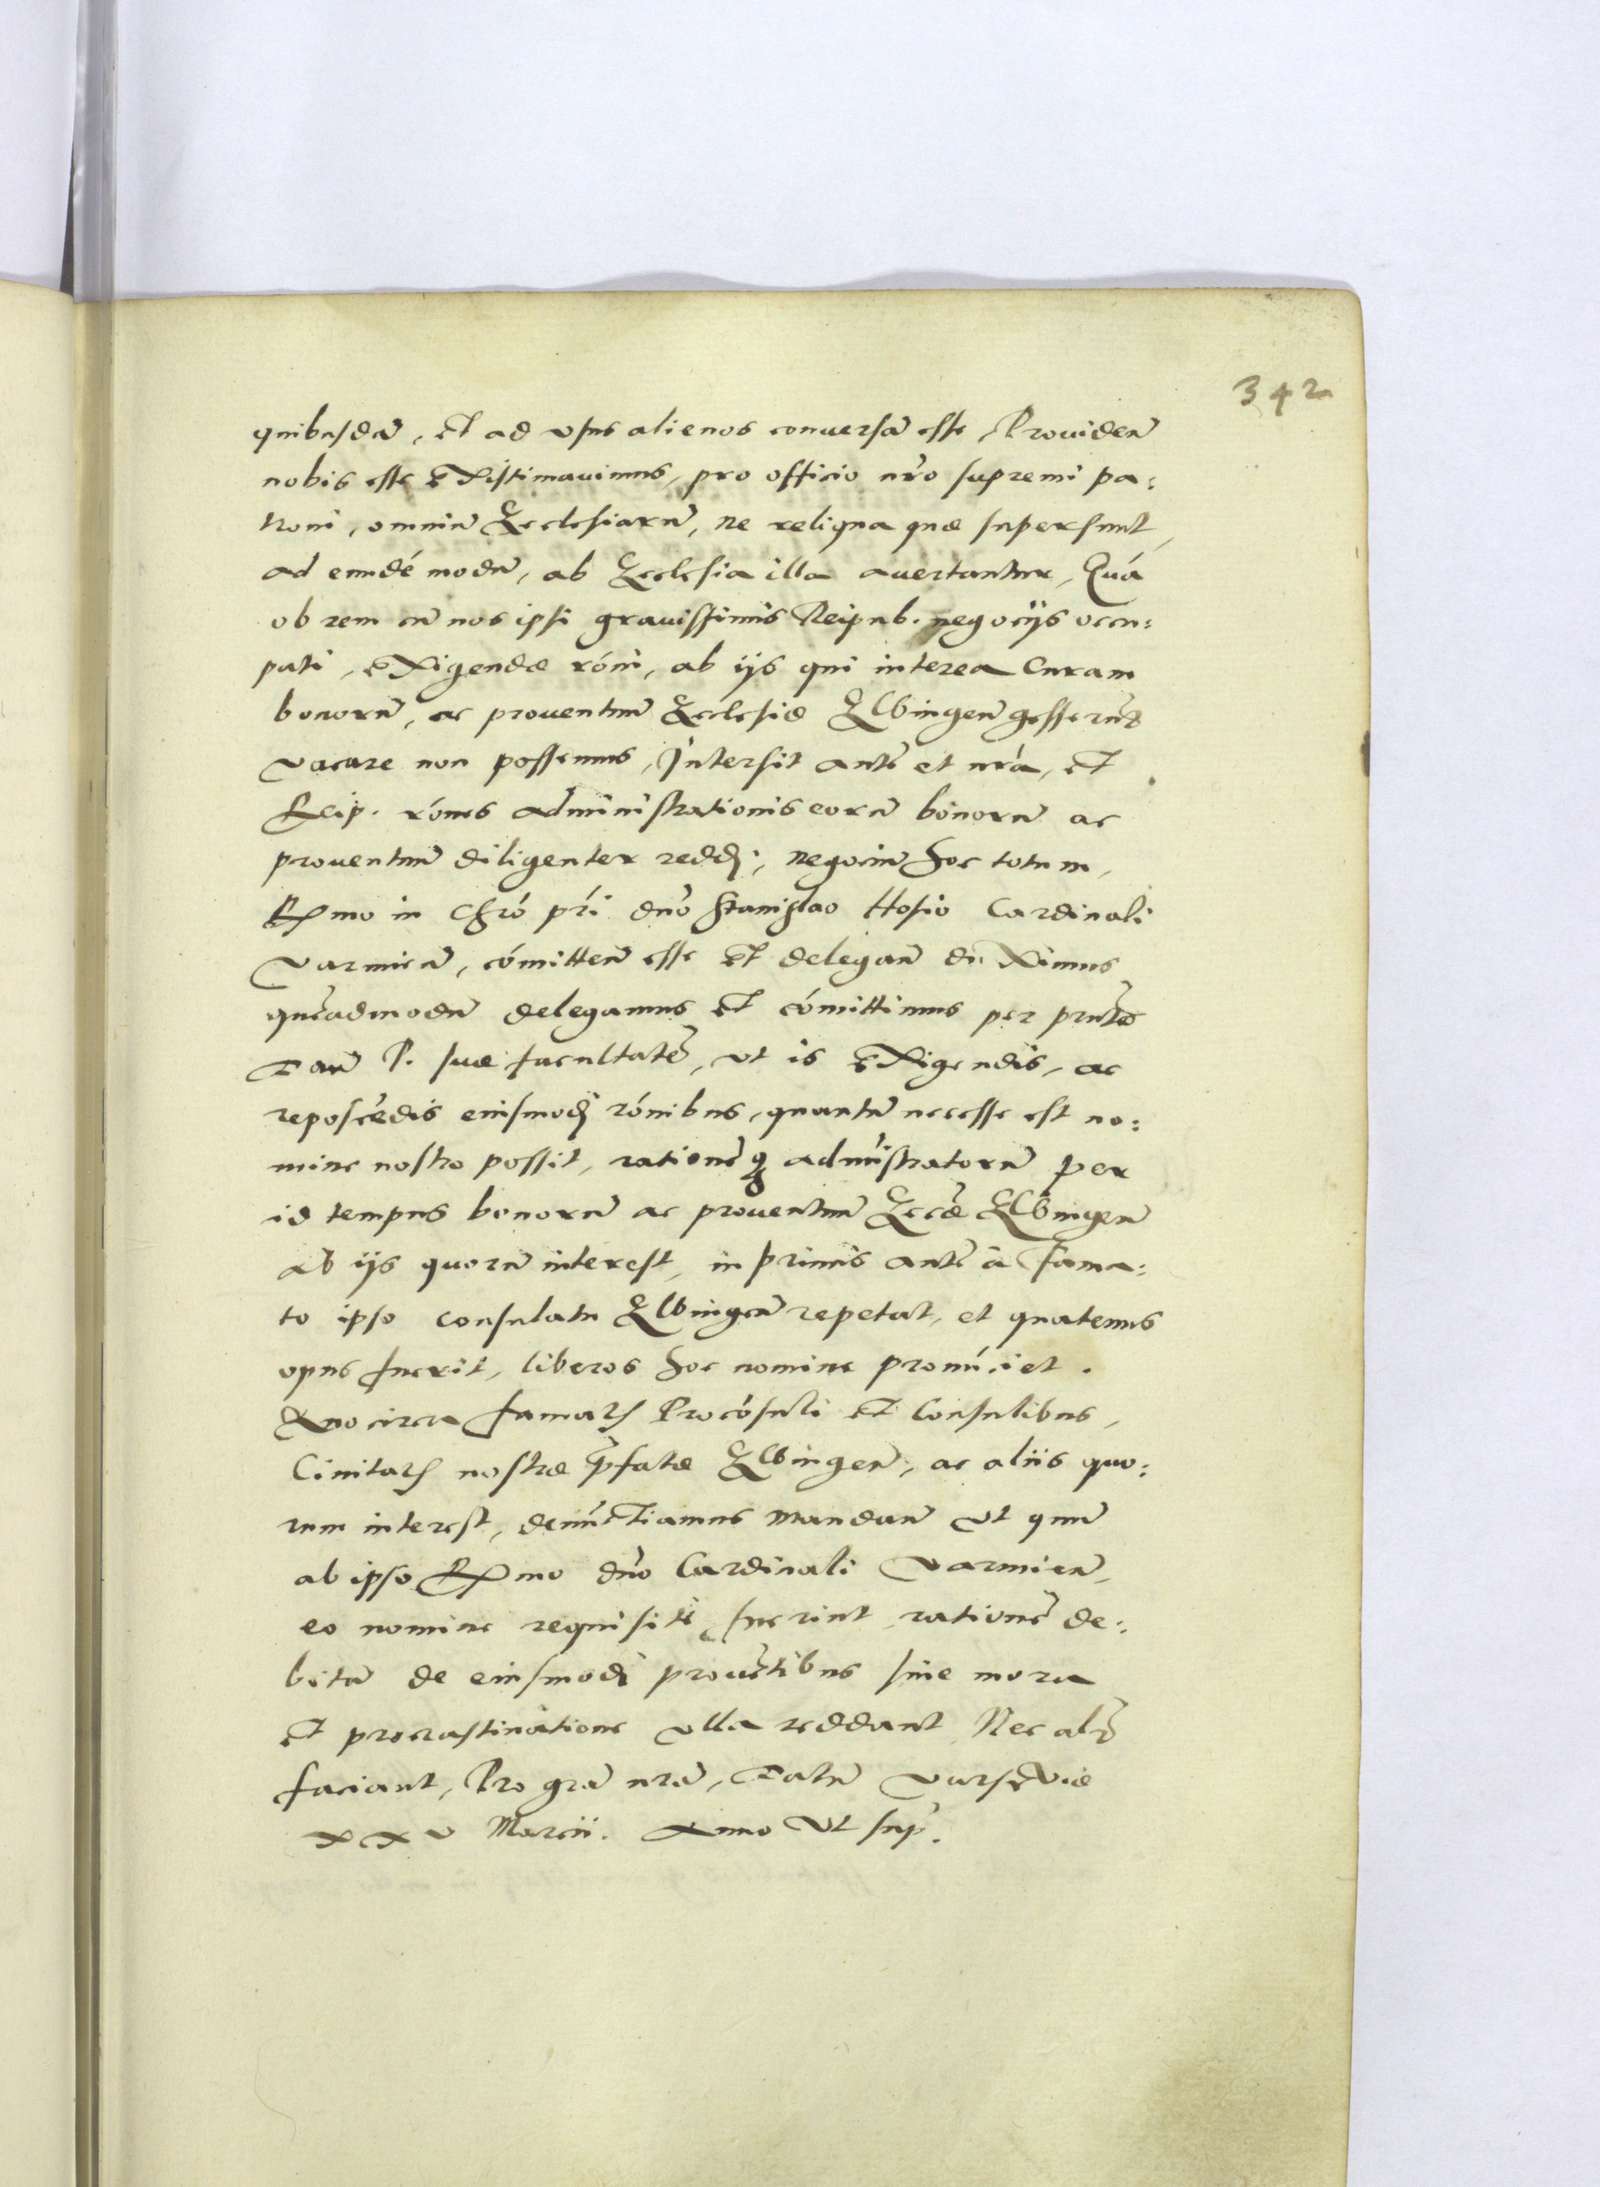 342
quibusdã, et ad usus alienos conversã esse, Providen̄
nobis esse existimavimus, pro officio nr̃o supremi pa:
troni, omniũ Ecclesiarũ, ne reliqua quæ supersunt,
ad eundẽ modũ, ab Ecclesia illa avertantur, Quã
ob rem cũ nos ipsi gravissimis Reipub. negociis occu:
pati, exigendæ rõni, ab iis qui interea Curam
bonorũ, ac proventuũ Ecclesiæ Elbingen̄ gesserũt
vacare non possemus, Intersit autẽ et nr̃a, et
Reip. rõnes administrationis eorũ bonorũ ac
proventuũ diligenter reddi, negociũ hoc totum,
Rx̃mo in Chr̃o pr̃i dño Stanislao Hosio Cardinali
Varmien̄, cõmitten̄ esse et delegan̄ duximus
quẽadmodũ delegamus et cõmittimus per pñtes
Dan̄ P. suæ facultatẽ, ut is exigendis, ac
reposcẽdis eiusmodi rõnibus, quantũ necesse est no:
mine nostro possit, rationẽq administratorũ per
id tempus bonorũ ac proventuũ Eccæ Elbingen̄
ab iis quorũ interest, in primis autẽ à fama:
to ipso consulatu Elbingen̄ repetat, et quatenus
opus fuerit, liberos hoc nomine pronũciet.
Quocirca famatis Procõsuli et Consulibus,
Civitatis nostræ p̃fatæ Elbingen̄, ac aliis quo:
rum interest, denũctiamus mandan̄ ut quũ
ab ipso Rx̃mo dño Cardinali Varmien̄,
eo nomine requisiti fuerint, rationẽ de:
bitã de eiusmodi provẽtibus sine mora
et procrastinatione ulla reddant, Nec alr̃
faciant, Pro gr̃a nr̃a, Datũ Varseviæ
xxv Marcii. Anno ut sup.